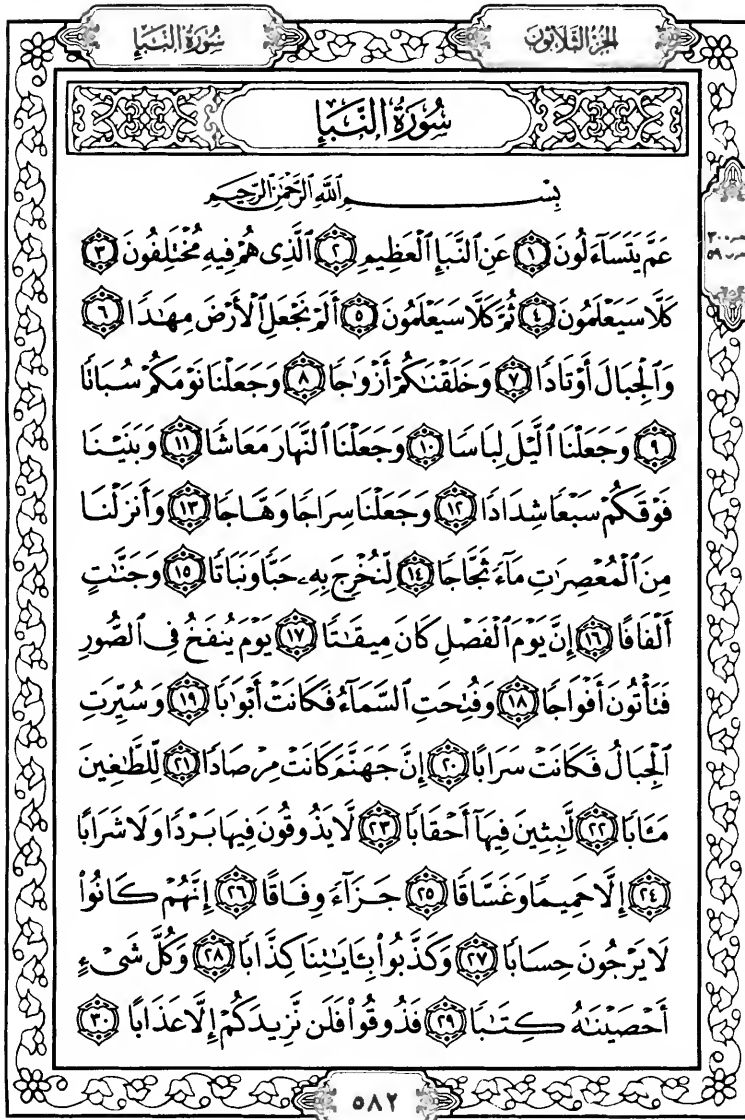 الجزء الثلاثون
سورة النبإ
سُورَةُ النَّبَإِ
بِسْمِ اللَّهِ الرَّحْمَٰنِ الرَّحِيمِ
عَمَّ يَتَسَآءَلُونَ ١ عَنِ ٱلنَّبَإِ ٱلْعَظِيمِ ٢ ٱلَّذِى هُمْ فِيهِ مُخْتَلِفُونَ ٣
كَلَّا سَيَعْلَمُونَ ٤ ثُمَّ كَلَّا سَيَعْلَمُونَ ٥ أَلَمْ نَجْعَلِ ٱلْأَرْضَ مِهَٰدًا ٦
وَٱلْجِبَالَ أَوْتَادًا ٧ وَخَلَقْنَٰكُمْ أَزْوَٰجًا ٨ وَجَعَلْنَا نَوْمَكُمْ سُبَاتًا
٩ وَجَعَلْنَا ٱلَّيْلَ لِبَاسًا ١٠ وَجَعَلْنَا ٱلنَّهَارَ مَعَاشًا ١١ وَبَنَيْنَا
فَوْقَكُمْ سَبْعًا شِدَادًا ١٢ وَجَعَلْنَا سِرَاجًا وَهَّاجًا ١٣ وَأَنزَلْنَا
مِنَ ٱلْمُعْصِرَٰتِ مَآءً ثَجَّاجًا ١٤ لِّنُخْرِجَ بِهِۦ حَبًّا وَنَبَاتًا ١٥ وَجَنَّٰتٍ
أَلْفَافًا ١٦ إِنَّ يَوْمَ ٱلْفَصْلِ كَانَ مِيقَٰتًا ١٧ يَوْمَ يُنفَخُ فِى ٱلصُّورِ
فَتَأْتُونَ أَفْوَاجًا ١٨ وَفُتِحَتِ ٱلسَّمَآءُ فَكَانَتْ أَبْوَٰبًا ١٩ وَسُيِّرَتِ
ٱلْجِبَالُ فَكَانَتْ سَرَابًا ٢٠ إِنَّ جَهَنَّمَ كَانَتْ مِرْصَادًا ٢١ لِّلطَّٰغِينَ
مَـَٔابًا ٢٢ لَّٰبِثِينَ فِيهَآ أَحْقَابًا ٢٣ لَّا يَذُوقُونَ فِيهَا بَرْدًا وَلَا شَرَابًا
٢٤ إِلَّا حَمِيمًا وَغَسَّاقًا ٢٥ جَزَآءً وِفَاقًا ٢٦ إِنَّهُمْ كَانُوا۟
لَا يَرْجُونَ حِسَابًا ٢٧ وَكَذَّبُوا۟ بِـَٔايَٰتِنَا كِذَّابًا ٢٨ وَكُلَّ شَىْءٍ
أَحْصَيْنَٰهُ كِتَٰبًا ٢٩ فَذُوقُوا۟ فَلَن نَّزِيدَكُمْ إِلَّا عَذَابًا ٣٠
٣٠
٥٩
٥٨٢